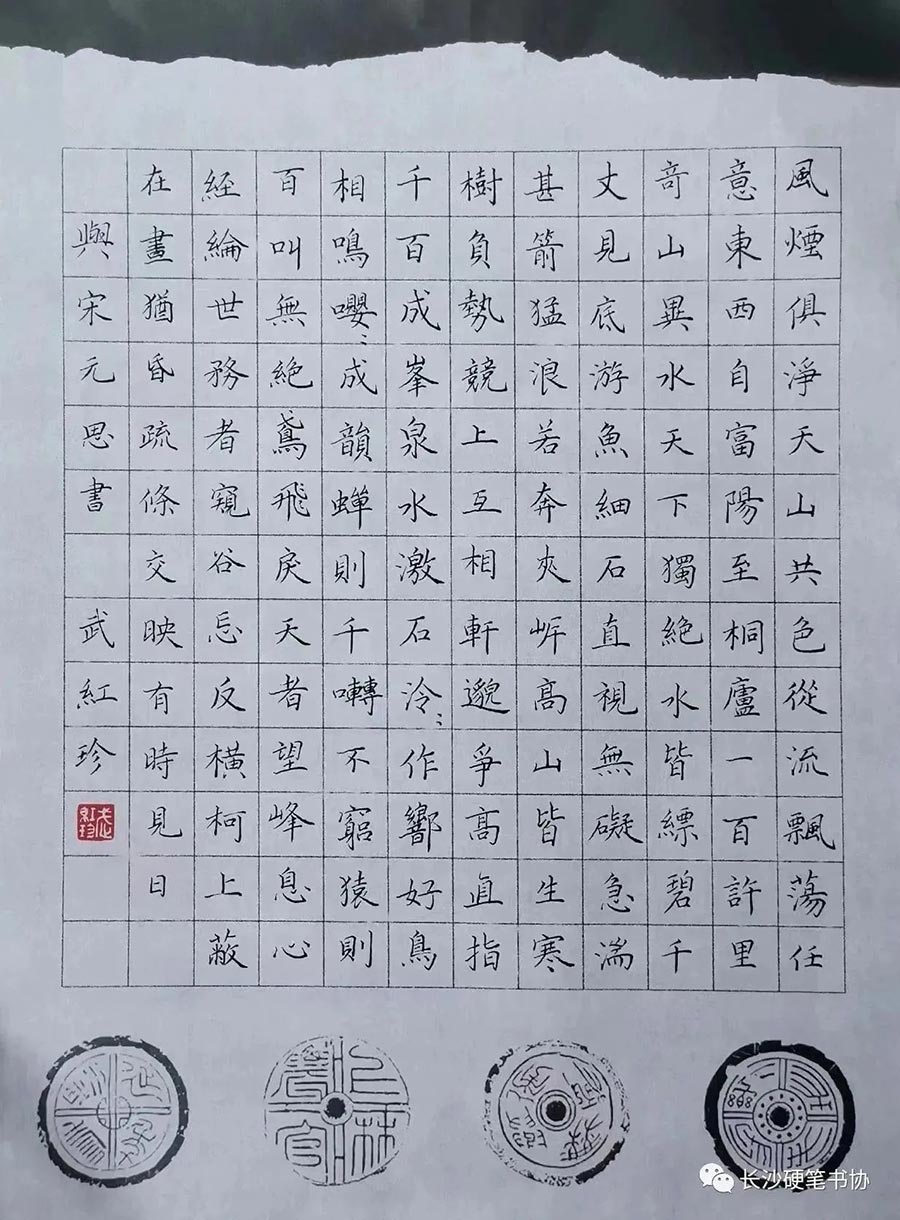 風煙俱淨天山共色從流飄蕩任
意東西自富陽至桐廬一百許里
奇山異水天下獨絕水皆縹碧千
丈見底游魚細石直視無礙急湍
甚箭猛浪若奔夾岸高山皆生寒
樹負勢競上互相軒邈爭高直指
千百成峯泉水激石泠〻作響好鳥
相鳴嚶〻成韻蟬則千囀不窮猿則
百叫無絕鳶飛戾天者望峰息心
經綸世務者窺谷忘反橫柯上蔽
在晝猶昏疏條交映有時見日
與宋元思書 武紅珍
长沙硬笔书协